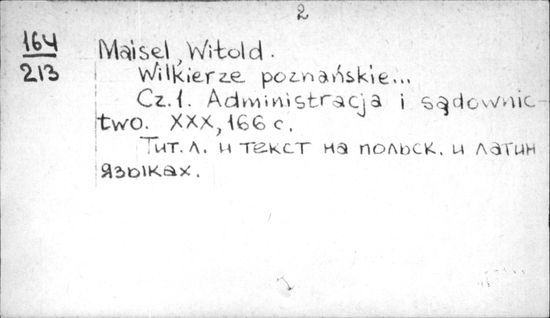 2
164
213
Maisel, Witold.
Wilkierze poznańskie...
Cz.1. Administracja i sądownic-
two. XXX, 166 с.
Тит. л. и текст на польск. и латин
языках.